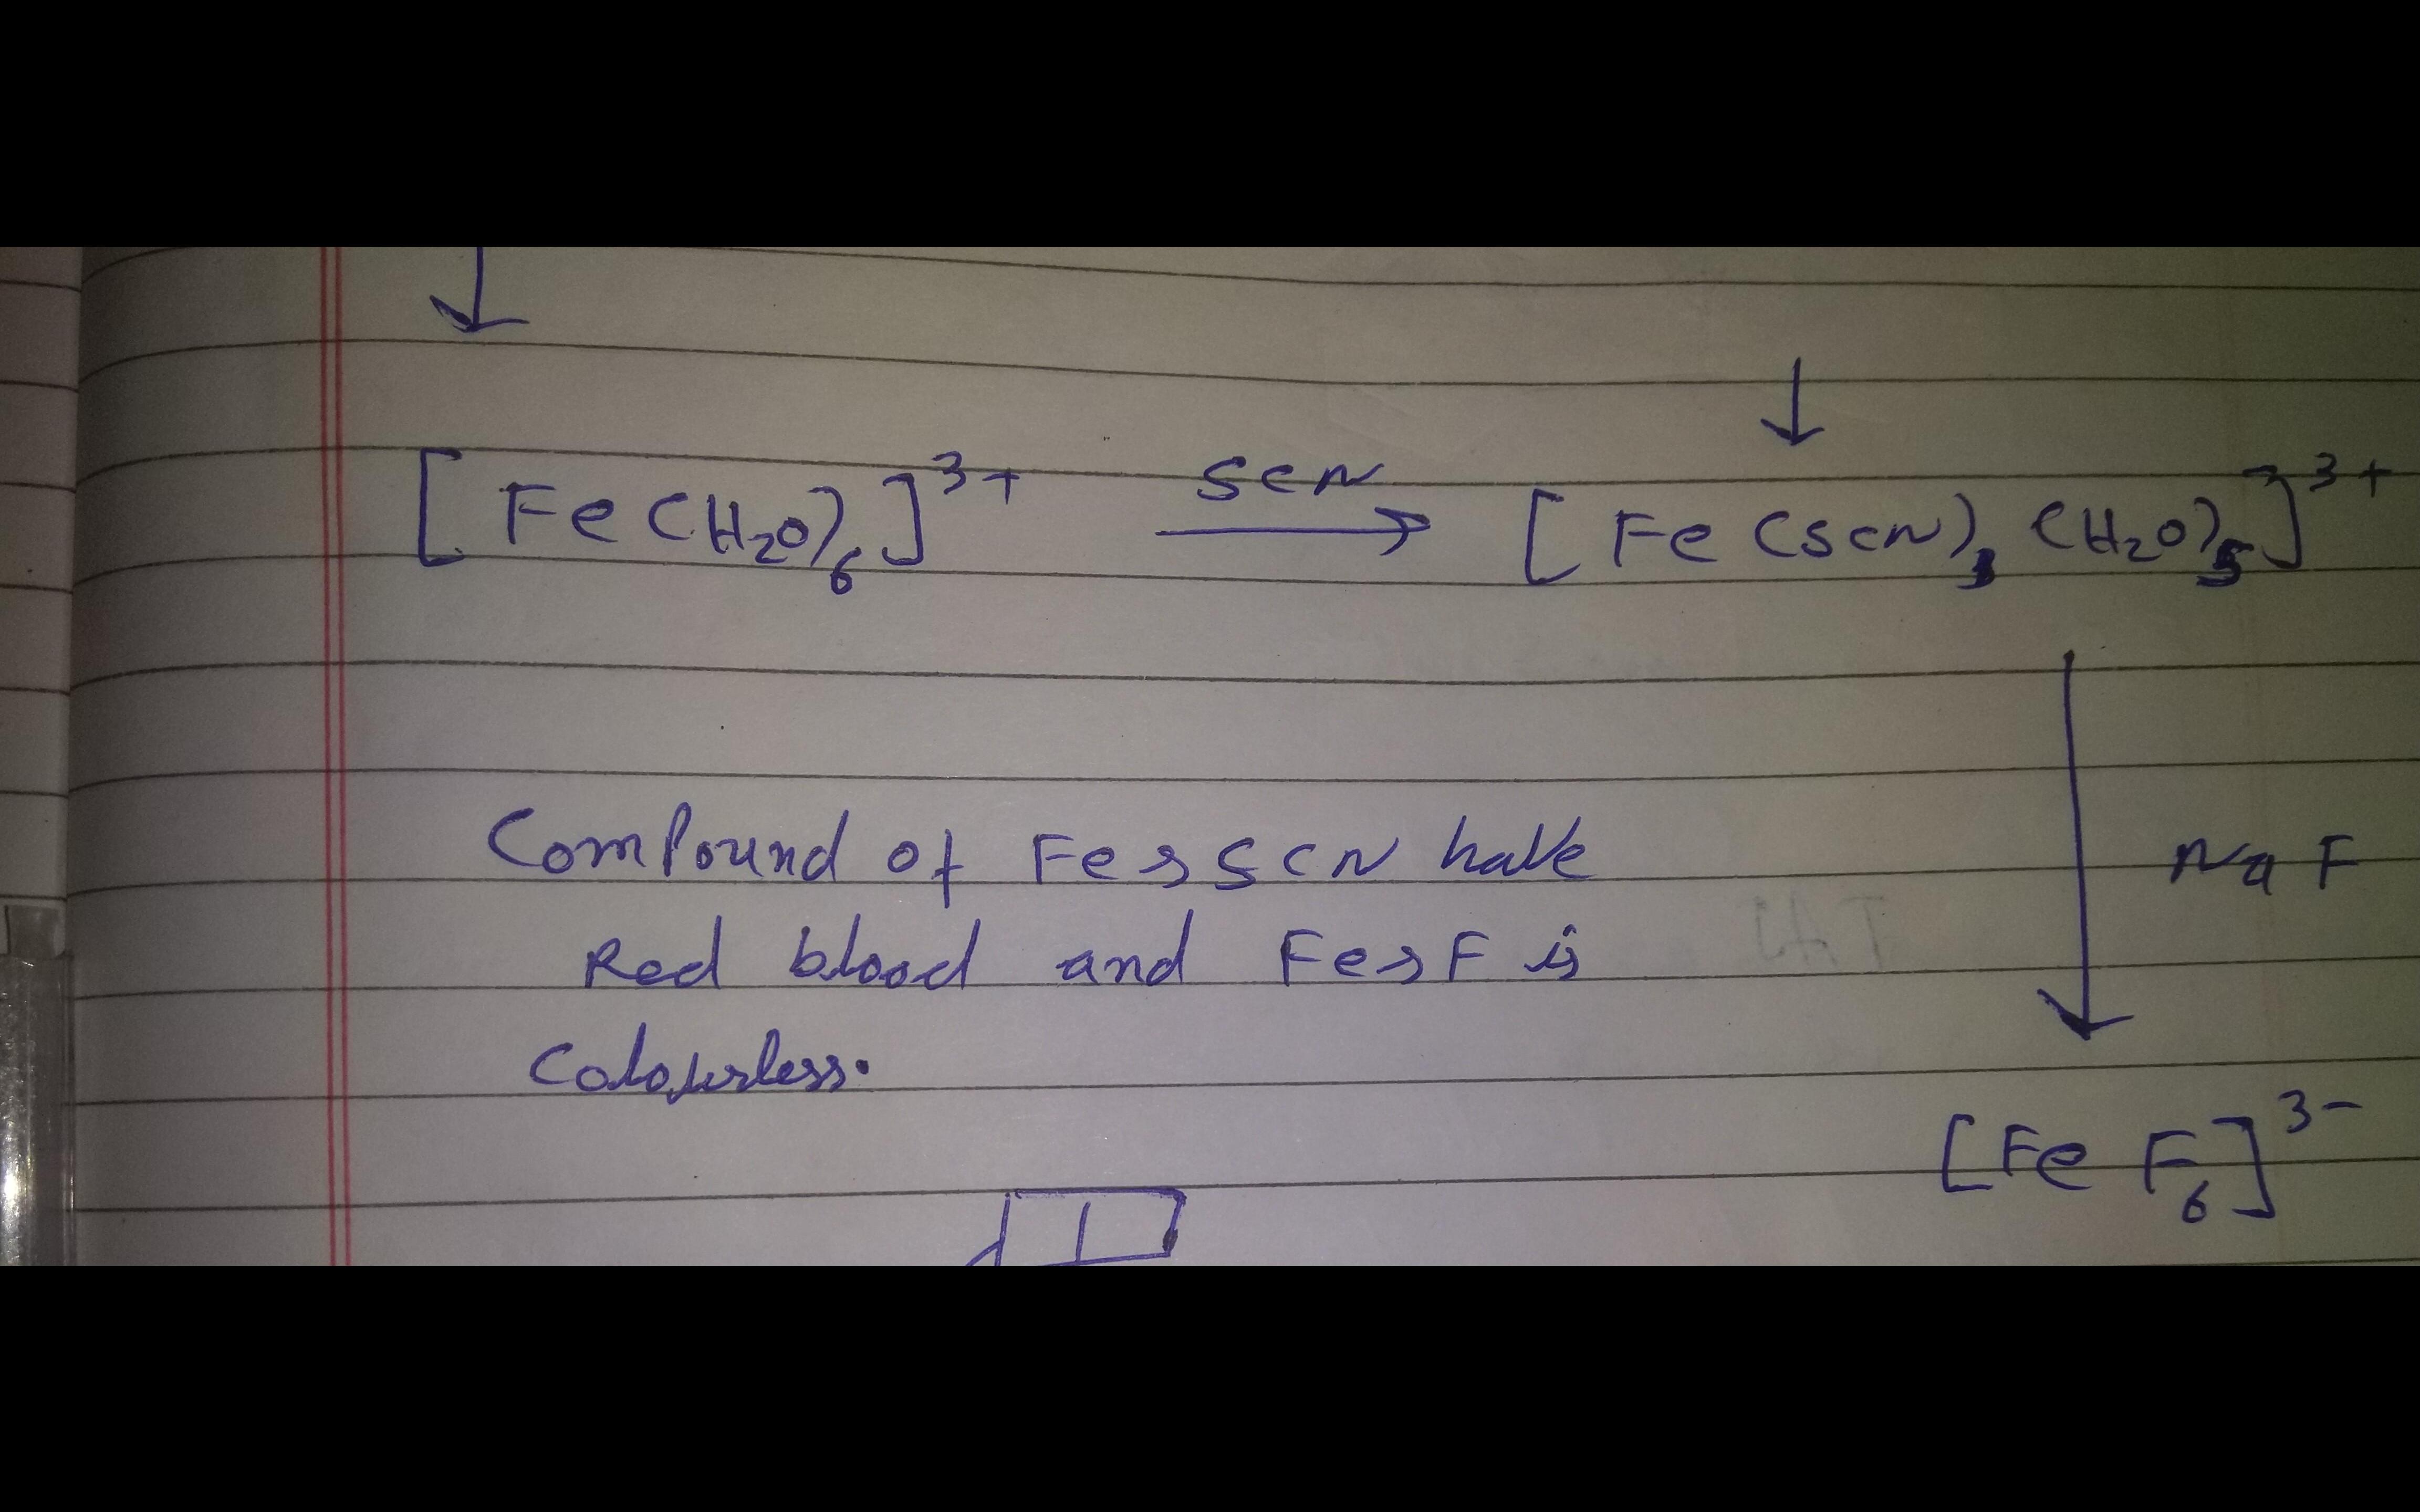 [Fe(H₂O)₆]³⁺ SCN → [Fe(SCN)₃(H₂O)₅]³⁺
NaF
Compound of Fe, SCN have
Red blood and Fe, F is
Colourless.
[FeF₆]³⁻